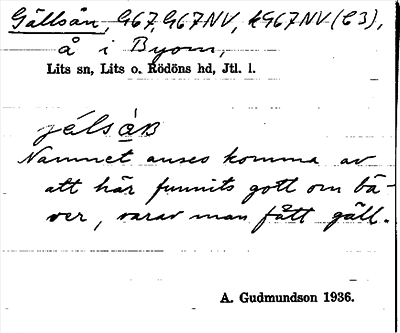 Gällsån, G67, G67NV, k G67NV (C3),
å i Byom,
Lits sn, Lits o. Rödöns hd, Jtl. l.
jélsåʙ
Namnet anses komma av
att här funnits gott om bä-
ver, varav man fått gäll.
A. Gudmundson 1936.